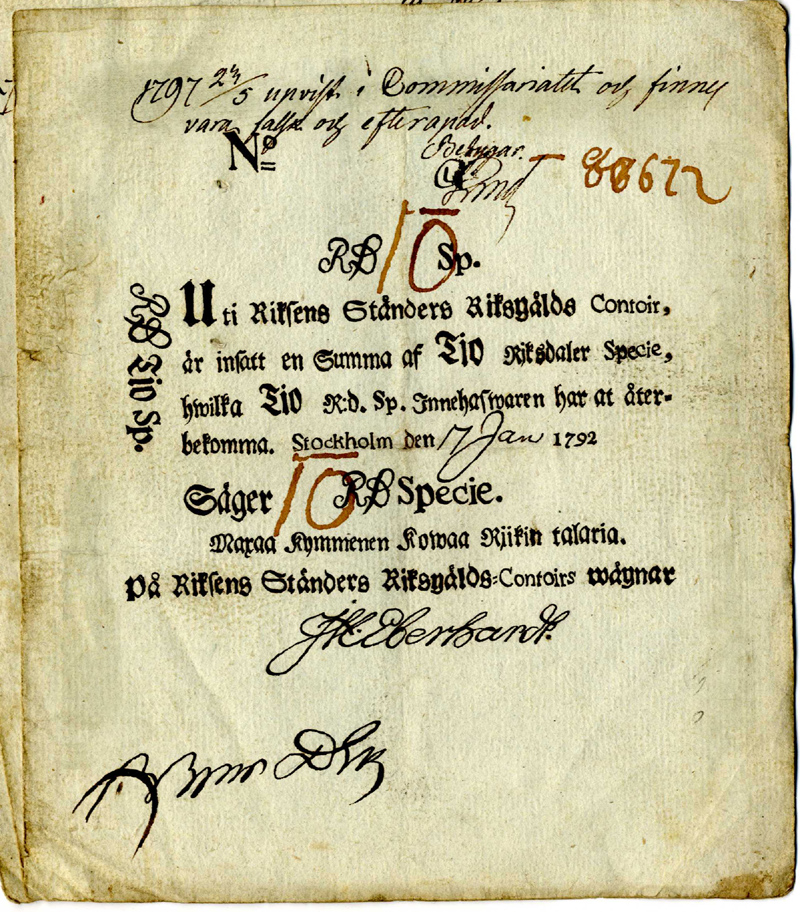 1797 23/5 upvist i Commissariatet och finnes
vara falsk och efterapad.
Betygar.
No
88672
RD 10 Sp.
RD Tio Sp.
Uti Riksens Ständers Riksgälds Contoir,
är insatt en Summa af Tio Riksdaler Specie,
hwilka Tio R:d. Sp. Innehafwaren har at åter-
bekomma. Stockholm den 17 Jan 1792
Säger 10 RD Specie.
Maxaa Kymmenen Kowaa Rijkin talaria.
På Riksens Ständers Riksgälds-Contoirs wägnar
Eberhardt.